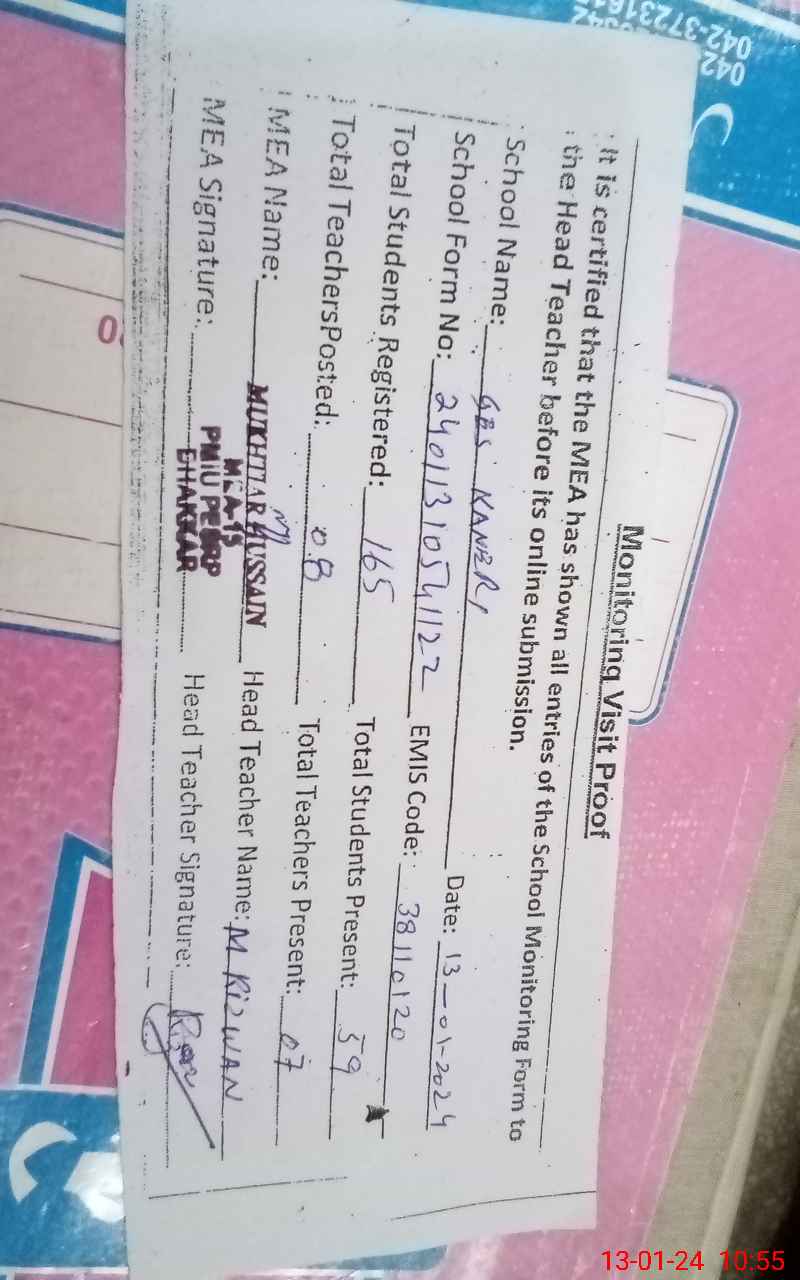 Monitoring Visit Proof
It is certified that the MEA has shown all entries of the School Monitoring Form to
the Head Teacher before its online submission.
School Name: GES KANERI Date: 13-01-2024
School Form No: 24011310541122 EMIS Code: 38110120
Total Students Registered: 165 Total Students Present: 59
Total TeachersPosted: 08 Total Teachers Present: 07
MEA Name: MUKHTIAR HUSSAIN Head Teacher Name: M RIZWAN
MEA-15
PMIU PESRP
BHAKKAR
MEA Signature: Head Teacher Signature:
13-01-24 10:55